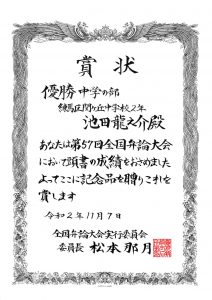 賞状
優勝 中学の部
練馬区開ケ丘中学校2年
池田龍之介殿
あなたは第57回全国弁論大会
において頭書の成績をおさめました
よってここに記念品を贈りこれを
賞します
令和2年11月7日
全国弁論大会実行委員会
委員長 松本那月